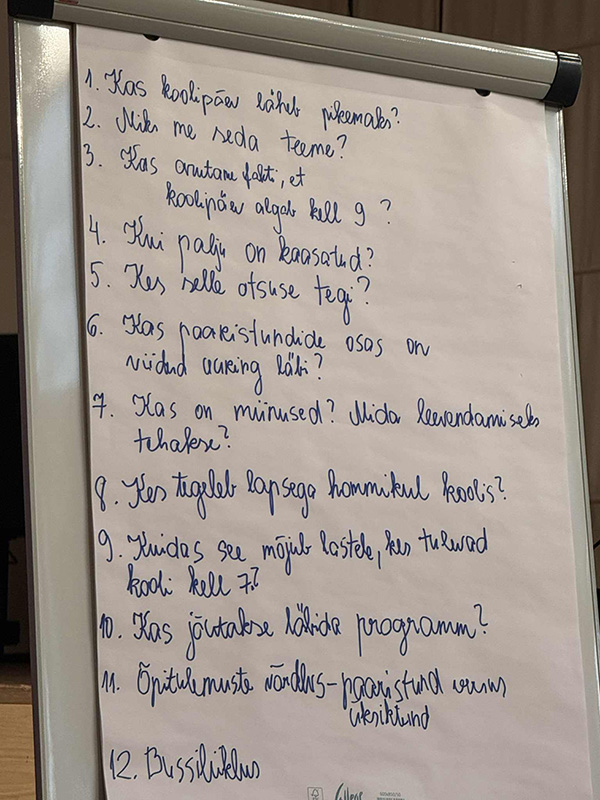 1. Kas koolipäev läheb pikemaks?
2. Miks me seda teeme?
3. Kas arutame fakti, et
koolipäev algab kell 9?
4. Kui palju on kaasatud?
5. Kes selle otsuse tegi?
6. Kas paaristundide osas on
viidud uuring läbi?
7. Kas on miinused? Mida leevendamiseks
tehakse?
8. Kes tegeleb lapsega hommikul koolis?
9. Kuidas see mõjub lastele, kes tulevad
kooli kell 7.?
10. Kas jõutakse läbida programm?
11. Õpitulemuste võrdlus - paaristund versus
üksiktund
12. Bussiliiklus
FSC